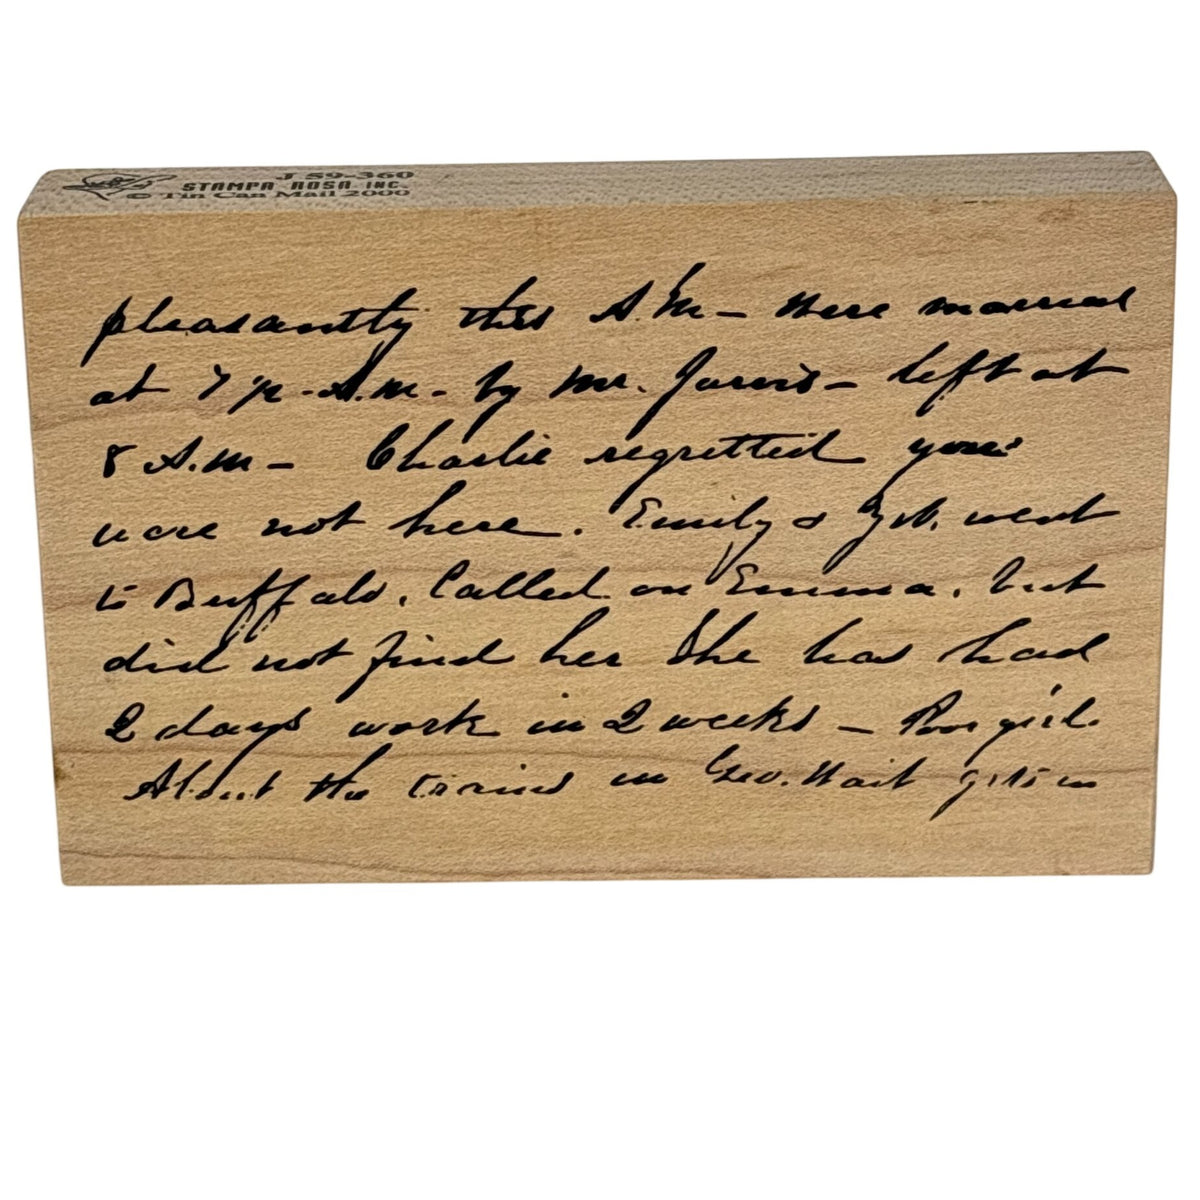 J 59-360
STAMPA ROSA, INC.
© Tin Can Mail 2000
pleasantly this A.M – were married
at 7 A.M. – by Mr. Jarvis – left at
8 A.M – Charlie regretted you
were not here. Emily & went
to Buffalo. Called on Emma, but
did not find her She has had
2 days work in 2 weeks – Poor girl.
About the in Geo. Wait